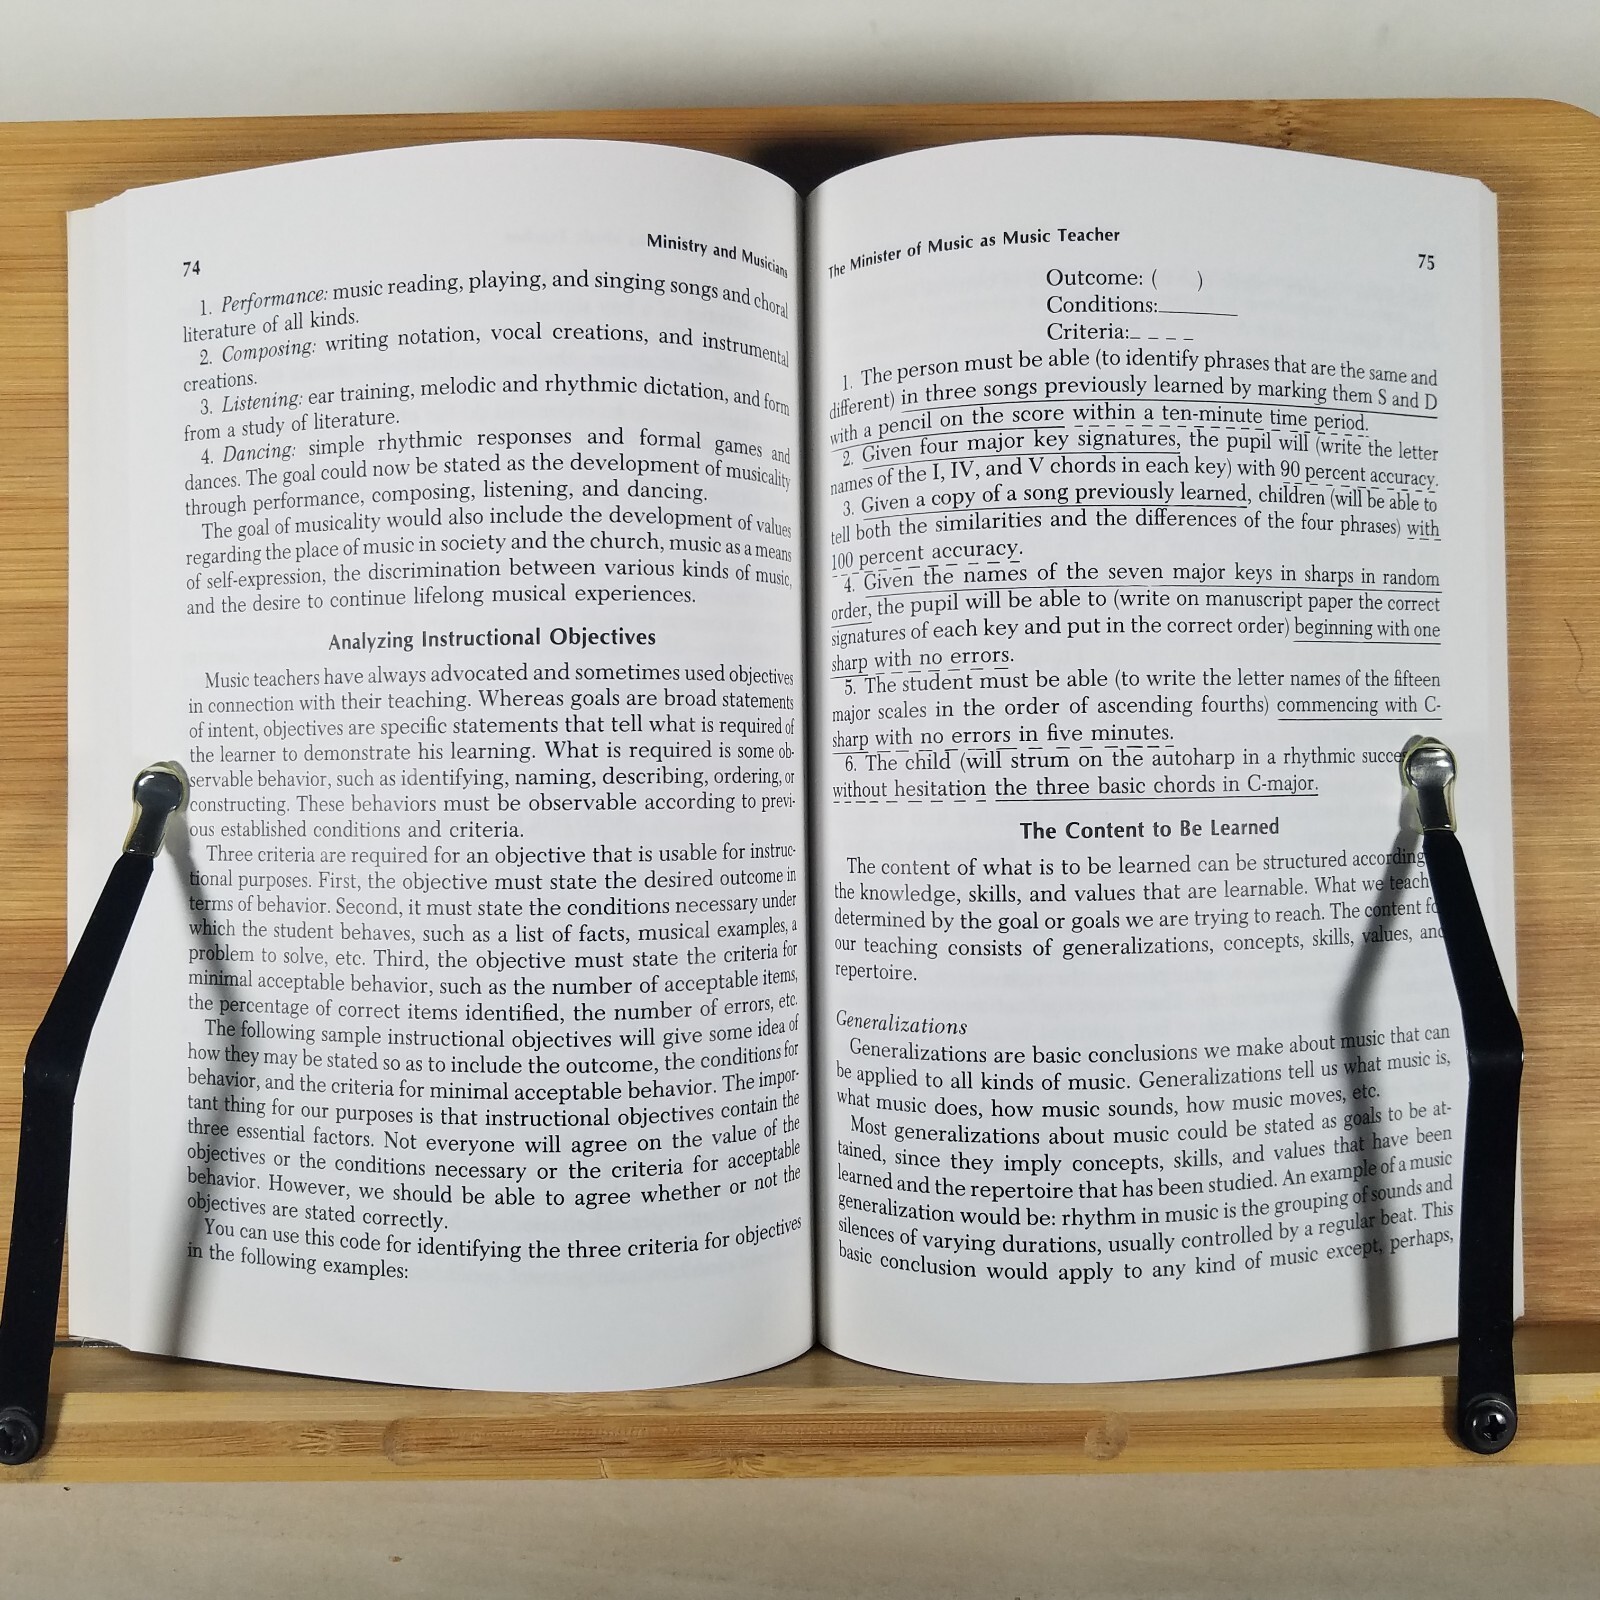 74
Ministry and Musicians
1. Performance: music reading, playing, and singing songs and choral
literature of all kinds.
2. Composing: writing notation, vocal creations, and instrumental
creations.
3. Listening: ear training, melodic and rhythmic dictation, and form
from a study of literature.
4. Dancing: simple rhythmic responses and formal games and
dances. The goal could now be stated as the development of musicality
through performance, composing, listening, and dancing.
The goal of musicality would also include the development of values
regarding the place of music in society and the church, music as a means
of self-expression, the discrimination between various kinds of music,
and the desire to continue lifelong musical experiences.
Analyzing Instructional Objectives
Music teachers have always advocated and sometimes used objectives
in connection with their teaching. Whereas goals are broad statements
of intent, objectives are specific statements that tell what is required of
the learner to demonstrate his learning. What is required is some ob-
servable behavior, such as identifying, naming, describing, ordering, or
constructing. These behaviors must be observable according to previ-
ous established conditions and criteria.
Three criteria are required for an objective that is usable for instruc-
tional purposes. First, the objective must state the desired outcome in
terms of behavior. Second, it must state the conditions necessary under
which the student behaves, such as a list of facts, musical examples, a
problem to solve, etc. Third, the objective must state the criteria for
minimal acceptable behavior, such as the number of acceptable items,
the percentage of correct items identified, the number of errors, etc.
The following sample instructional objectives will give some idea of
how they may be stated so as to include the outcome, the conditions for
behavior, and the criteria for minimal acceptable behavior. The impor-
tant thing for our purposes is that instructional objectives contain the
three essential factors. Not everyone will agree on the value of the
objectives or the conditions necessary or the criteria for acceptable
behavior. However, we should be able to agree whether or not the
objectives are stated correctly.
You can use this code for identifying the three criteria for objectives
in the following examples:
The Minister of Music as Music Teacher
75
Outcome: ( )
Conditions:________
Criteria:_ _ _ _
1. The person must be able (to identify phrases that are the same and
different) in three songs previously learned by marking them S and D
with a pencil on the score within a ten-minute time period.
2. Given four major key signatures, the pupil will (write the letter
names of the I, IV, and V chords in each key) with 90 percent accuracy.
3. Given a copy of a song previously learned, children (will be able to
tell both the similarities and the differences of the four phrases) with
100 percent accuracy.
4. Given the names of the seven major keys in sharps in random
order, the pupil will be able to (write on manuscript paper the correct
signatures of each key and put in the correct order) beginning with one
sharp with no errors.
5. The student must be able (to write the letter names of the fifteen
major scales in the order of ascending fourths) commencing with C-
sharp with no errors in five minutes.
6. The child (will strum on the autoharp in a rhythmic succe
without hesitation the three basic chords in C-major.
The Content to Be Learned
The content of what is to be learned can be structured according
the knowledge, skills, and values that are learnable. What we teach
determined by the goal or goals we are trying to reach. The content fo
our teaching consists of generalizations, concepts, skills, values, and
repertoire.
Generalizations
Generalizations are basic conclusions we make about music that can
be applied to all kinds of music. Generalizations tell us what music is,
what music does, how music sounds, how music moves, etc.
Most generalizations about music could be stated as goals to be at-
tained, since they imply concepts, skills, and values that have been
learned and the repertoire that has been studied. An example of a music
generalization would be: rhythm in music is the grouping of sounds and
silences of varying durations, usually controlled by a regular beat. This
basic conclusion would apply to any kind of music except, perhaps,